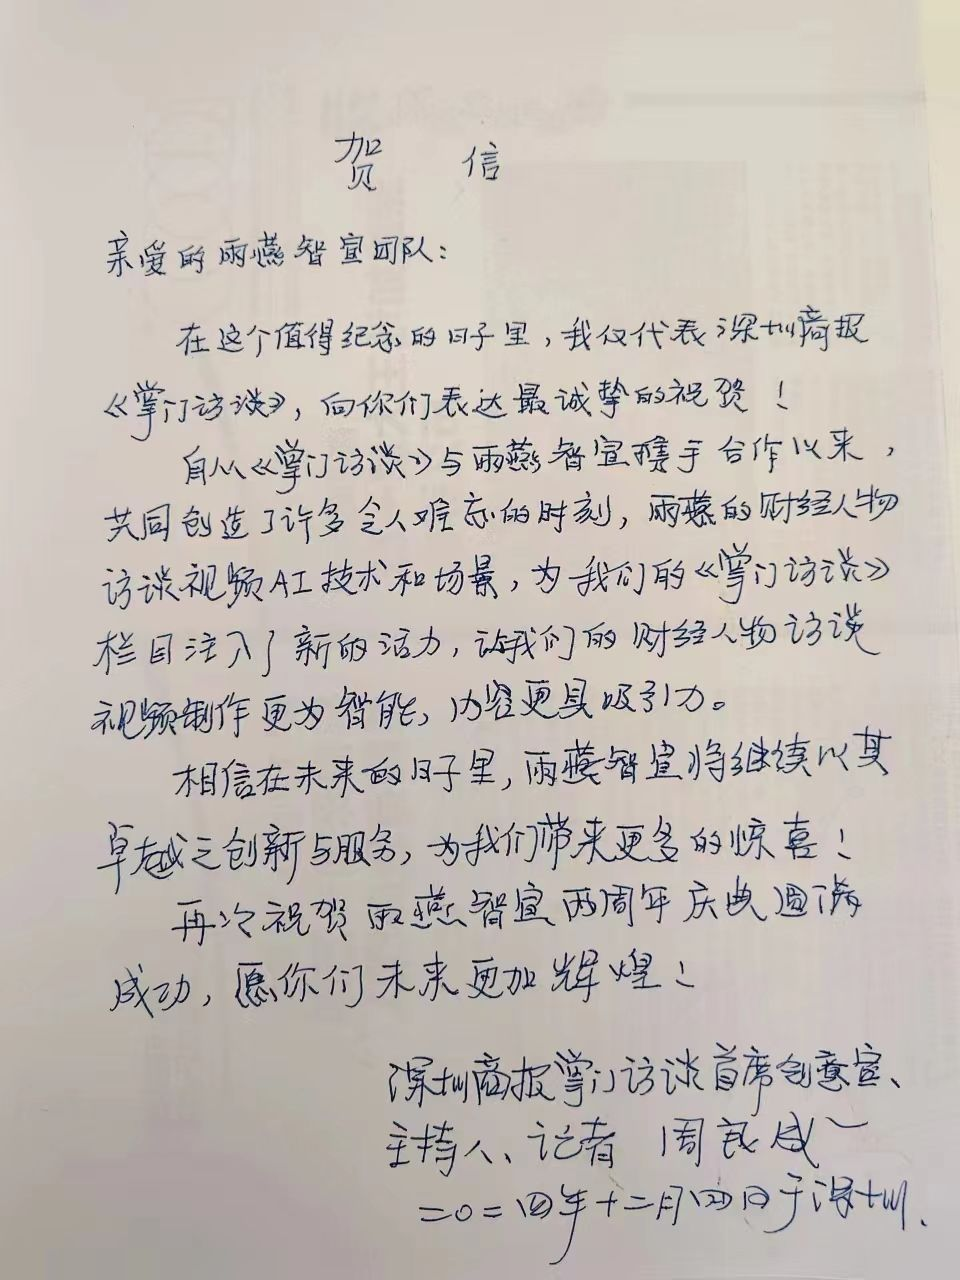 贺 信
亲爱的雨燕智宣团队：
在这个值得纪念的日子里，我仅代表深圳商报
《掌门访谈》，向你们表达最诚挚的祝贺！
自从《掌门访谈》与雨燕智宣携手合作以来，
共同创造了许多令人难忘的时刻，雨燕的财经人物
访谈视频AI技术和场景，为我们的《掌门访谈》
栏目注入了新的活力，让我们的财经人物访谈
视频制作更为智能，内容更具吸引力。
相信在未来的日子里，雨燕智宣将继续以其
卓越之创新与服务，为我们带来更多的惊喜！
再次祝贺雨燕智宣两周年庆典圆满
成功，愿你们未来更加辉煌！
深圳商报掌门访谈首席创意官、
主持人、记者 周良成
二〇二四年十二月四日于深圳.